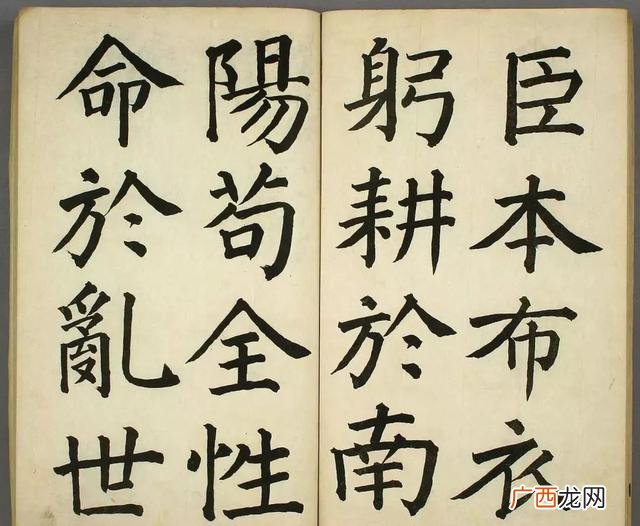 臣本布衣
躬耕於南
陽苟全性
命於亂世
广西龙网